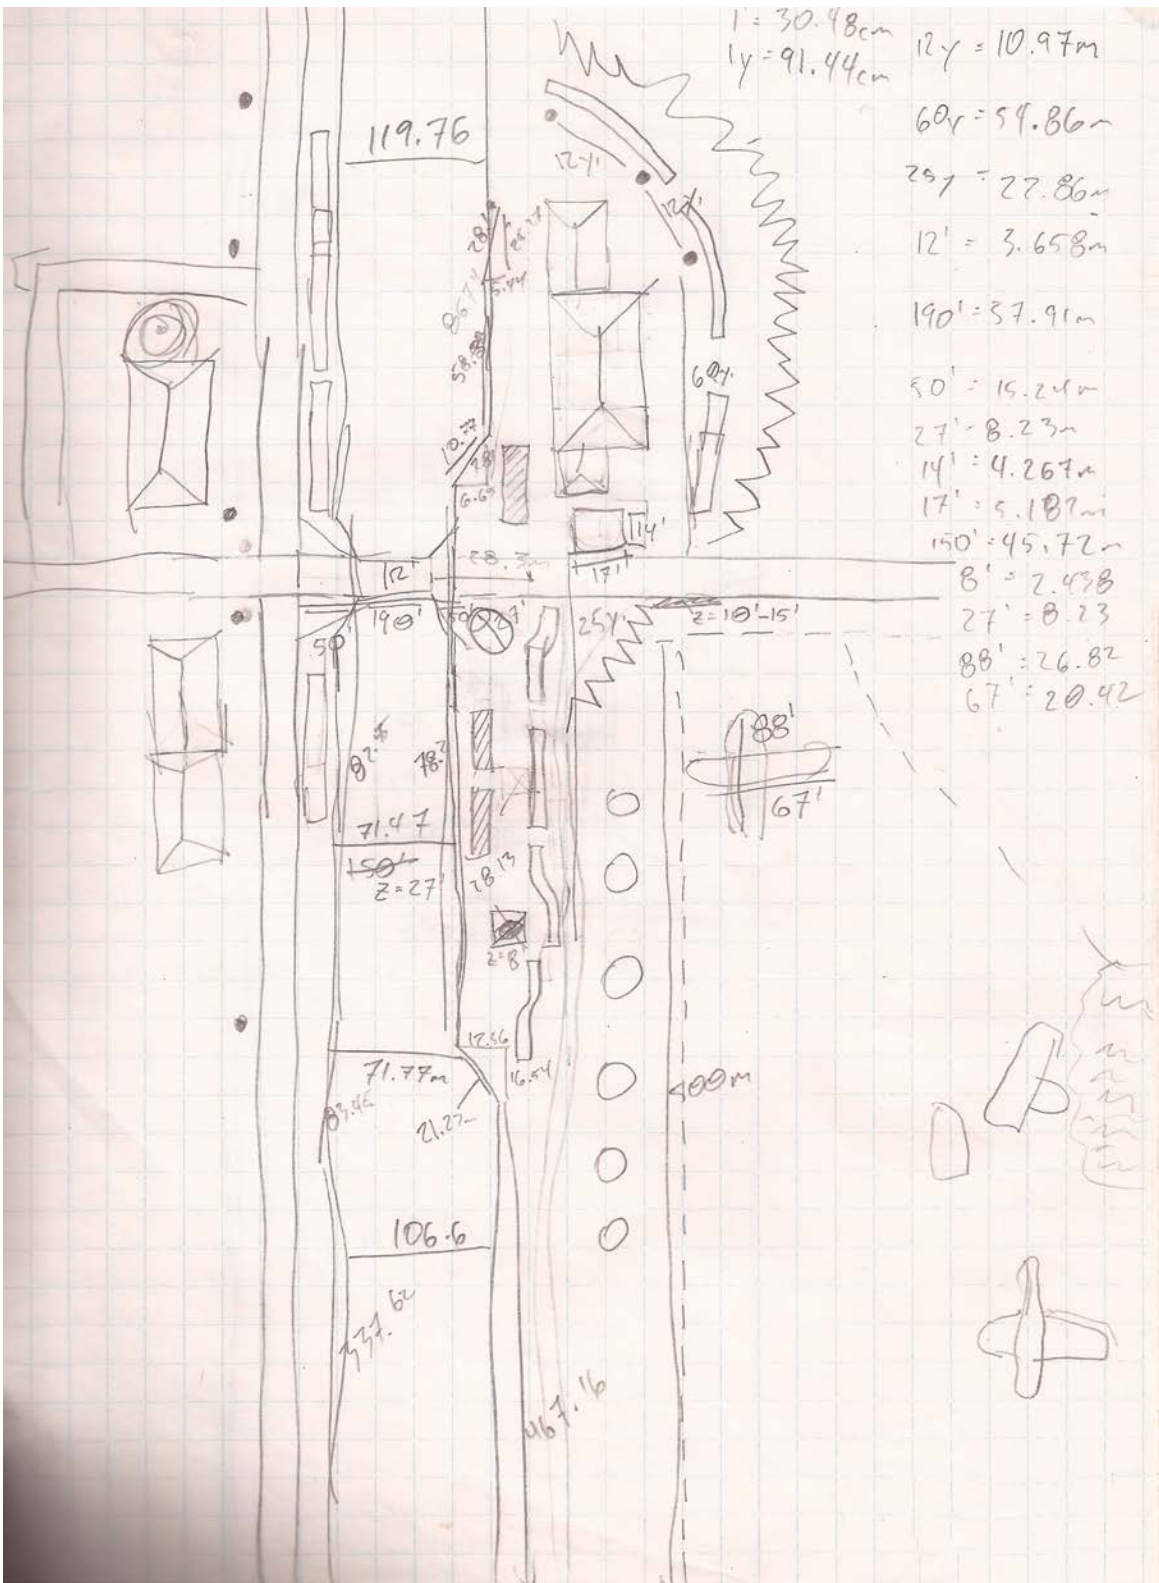 1' = 30.48cm
1y = 91.44cm
12y = 10.97m
60y = 54.86m
25y = 22.86m
12' = 3.658m
190' = 57.91m
50' = 15.24m
27' = 8.23m
14' = 4.267m
17' = 5.182m
150' = 45.72m
8' = 2.438
27' = 8.23
88' = 26.82
67' = 20.42
119.76
12y.
12y.
5.44
58.38
60y.
10.77
6.65
14'
28.3m
12'
17'
190'
50'
27'
25y.
z=10'-15'
50'
88'
67'
78.2
71.47
150'
z=27'
28.13
z=8'
12.56
71.77m
16.54
400m
83.45
21.27m
106.6
337.62
467.16